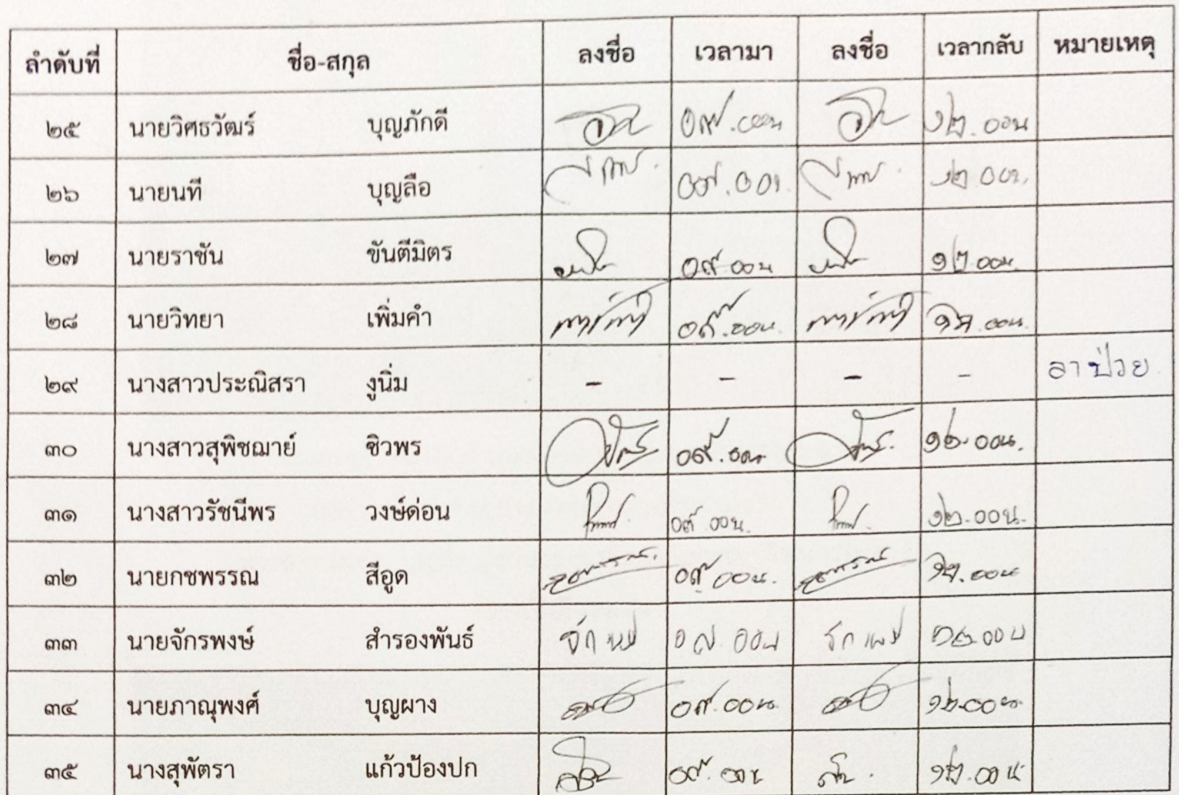 ลำดับที่ ชื่อ-สกุล ลงชื่อ เวลามา ลงชื่อ เวลากลับ หมายเหตุ
๒๕ นายวิศธวัฒร์ บุญภักดี ๐๙.๐๐น ๑๒.๐๐น
๒๖ นายนที บุญลือ ๐๙.๐๐น. ๑๒.๐๐น.
๒๗ นายราชัน ขันตีมิตร ๐๙.๐๐น ๑๒.๐๐น.
๒๘ นายวิทยา เพิ่มคำ ๐๙.๐๐น. ๑๒.๐๐น.
๒๙ นางสาวประณิสรา งูนิ่ม - - - - ลาป่วย
๓๐ นางสาวสุพิชฌาย์ ชิวพร ๐๙.๐๐น ๑๒.๐๐น.
๓๑ นางสาวรัชนีพร วงษ์ด่อน ๐๙.๐๐น. ๑๒.๐๐น.
๓๒ นายกชพรรณ สีอูด ๐๙.๐๐น. ๑๒.๐๐น
๓๓ นายจักรพงษ์ สำรองพันธ์ ๐๙.๐๐น ๑๒.๐๐น
๓๔ นายภาณุพงศ์ บุญผาง ๐๙.๐๐น. ๑๒.๐๐น.
๓๕ นางสุพัตรา แก้วป้องปก ๐๙.๐๐น ๑๒.๐๐น